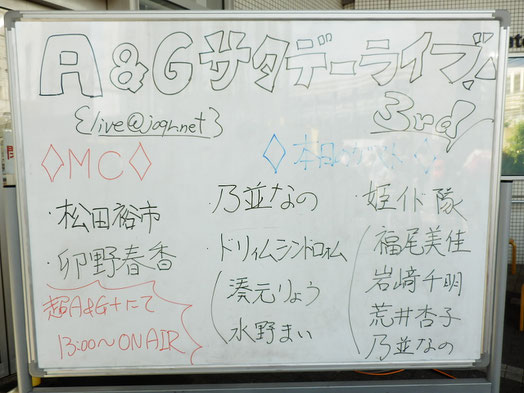 A&Gサタデーライブ!
3rd
{live@joqr.net}
◇MC◇
・松田裕市
・卯野春香
超A&G+にて
13:00〜ON AIR
◇本日のゲスト◇
・乃並なの
・ドリィムシンドロォム
湊元りょう
水野まい
・姫イド隊
福尾美佳
岩崎千明
荒井杏子
乃並なの